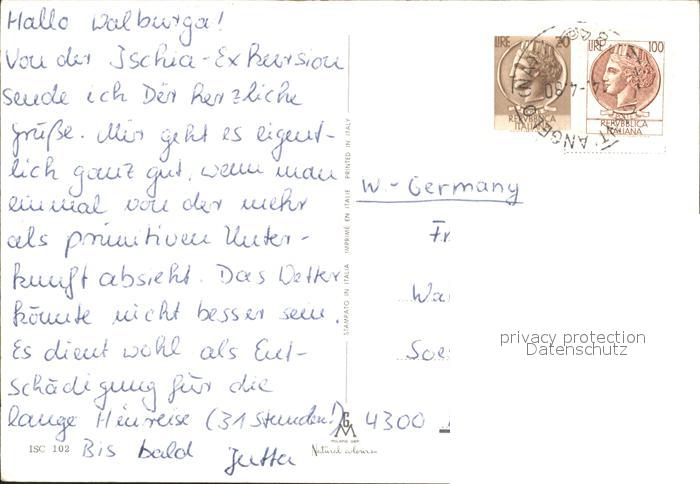 Hallo Walburga!
Von der Ischia-Exkursion
sende ich Dir herzliche
Grüße. Mir geht es eigent-
lich ganz gut, wenn man
einmal von der mehr
als primitiven Unter-
kunft absieht. Das Wetter
könnte nicht besser sein.
Es dient wohl als Ent-
schädigung für die
lange Hinreise (31 Stunden!)
Bis bald Jutta
ISC 102
STAMPATO IN ITALIA IMPRIMÉ EN ITALIE PRINTED IN ITALY
GM
MILANO DEP.
Natural colours
LIRE 20
REPVBBLICA
ITALIANA
LIRE 100
REPVBBLICA
ITALIANA
W.-Germany
Fr
Wa
Soe
4300
privacy protection
Datenschutz